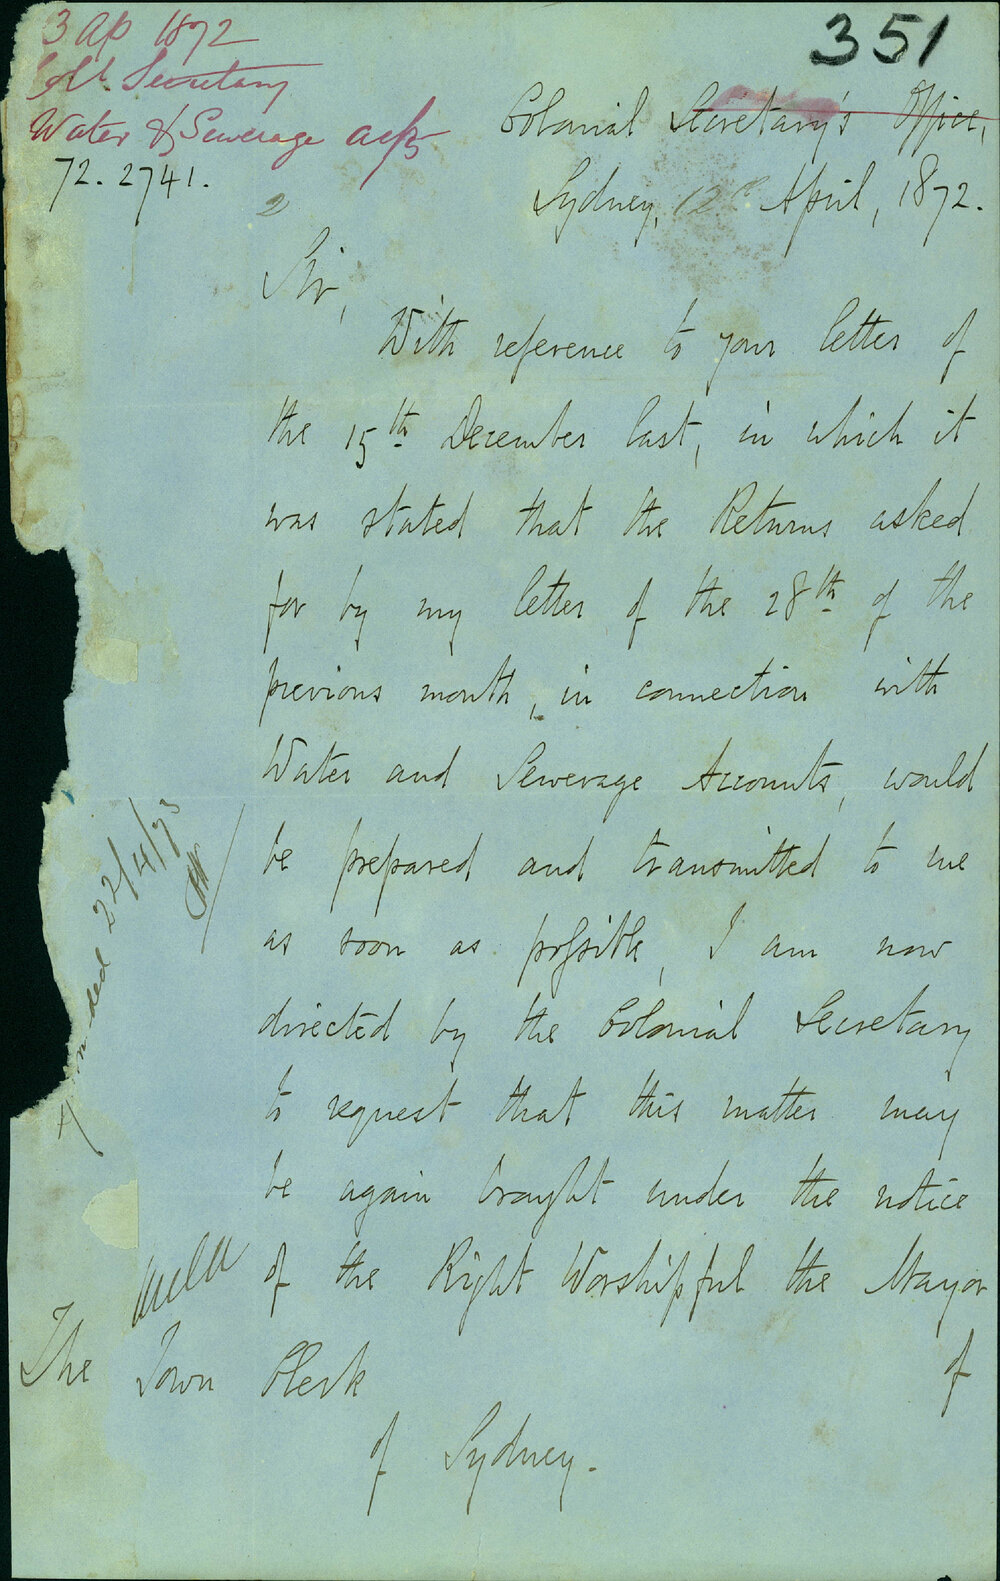 3 Ap 1872
Col. Secretary
Water & Sewerage a/cs
72.2741.
351
Colonial Secretary's Office,
Sydney, 12th April, 1872.
2
Sir,
With reference to your letter of
the 15th December last, in which it
was stated that the Returns asked
for by my letter of the 28th of the
previous month, in connection with
Water and Sewerage Accounts, would
be prepared and transmitted to me
as soon as possible, I am now
directed by the Colonial Secretary
to request that this matter may
be again brought under the notice
of the Right Worshipful the Mayor
of
The Town Clerk
of Sydney.
22/4/73